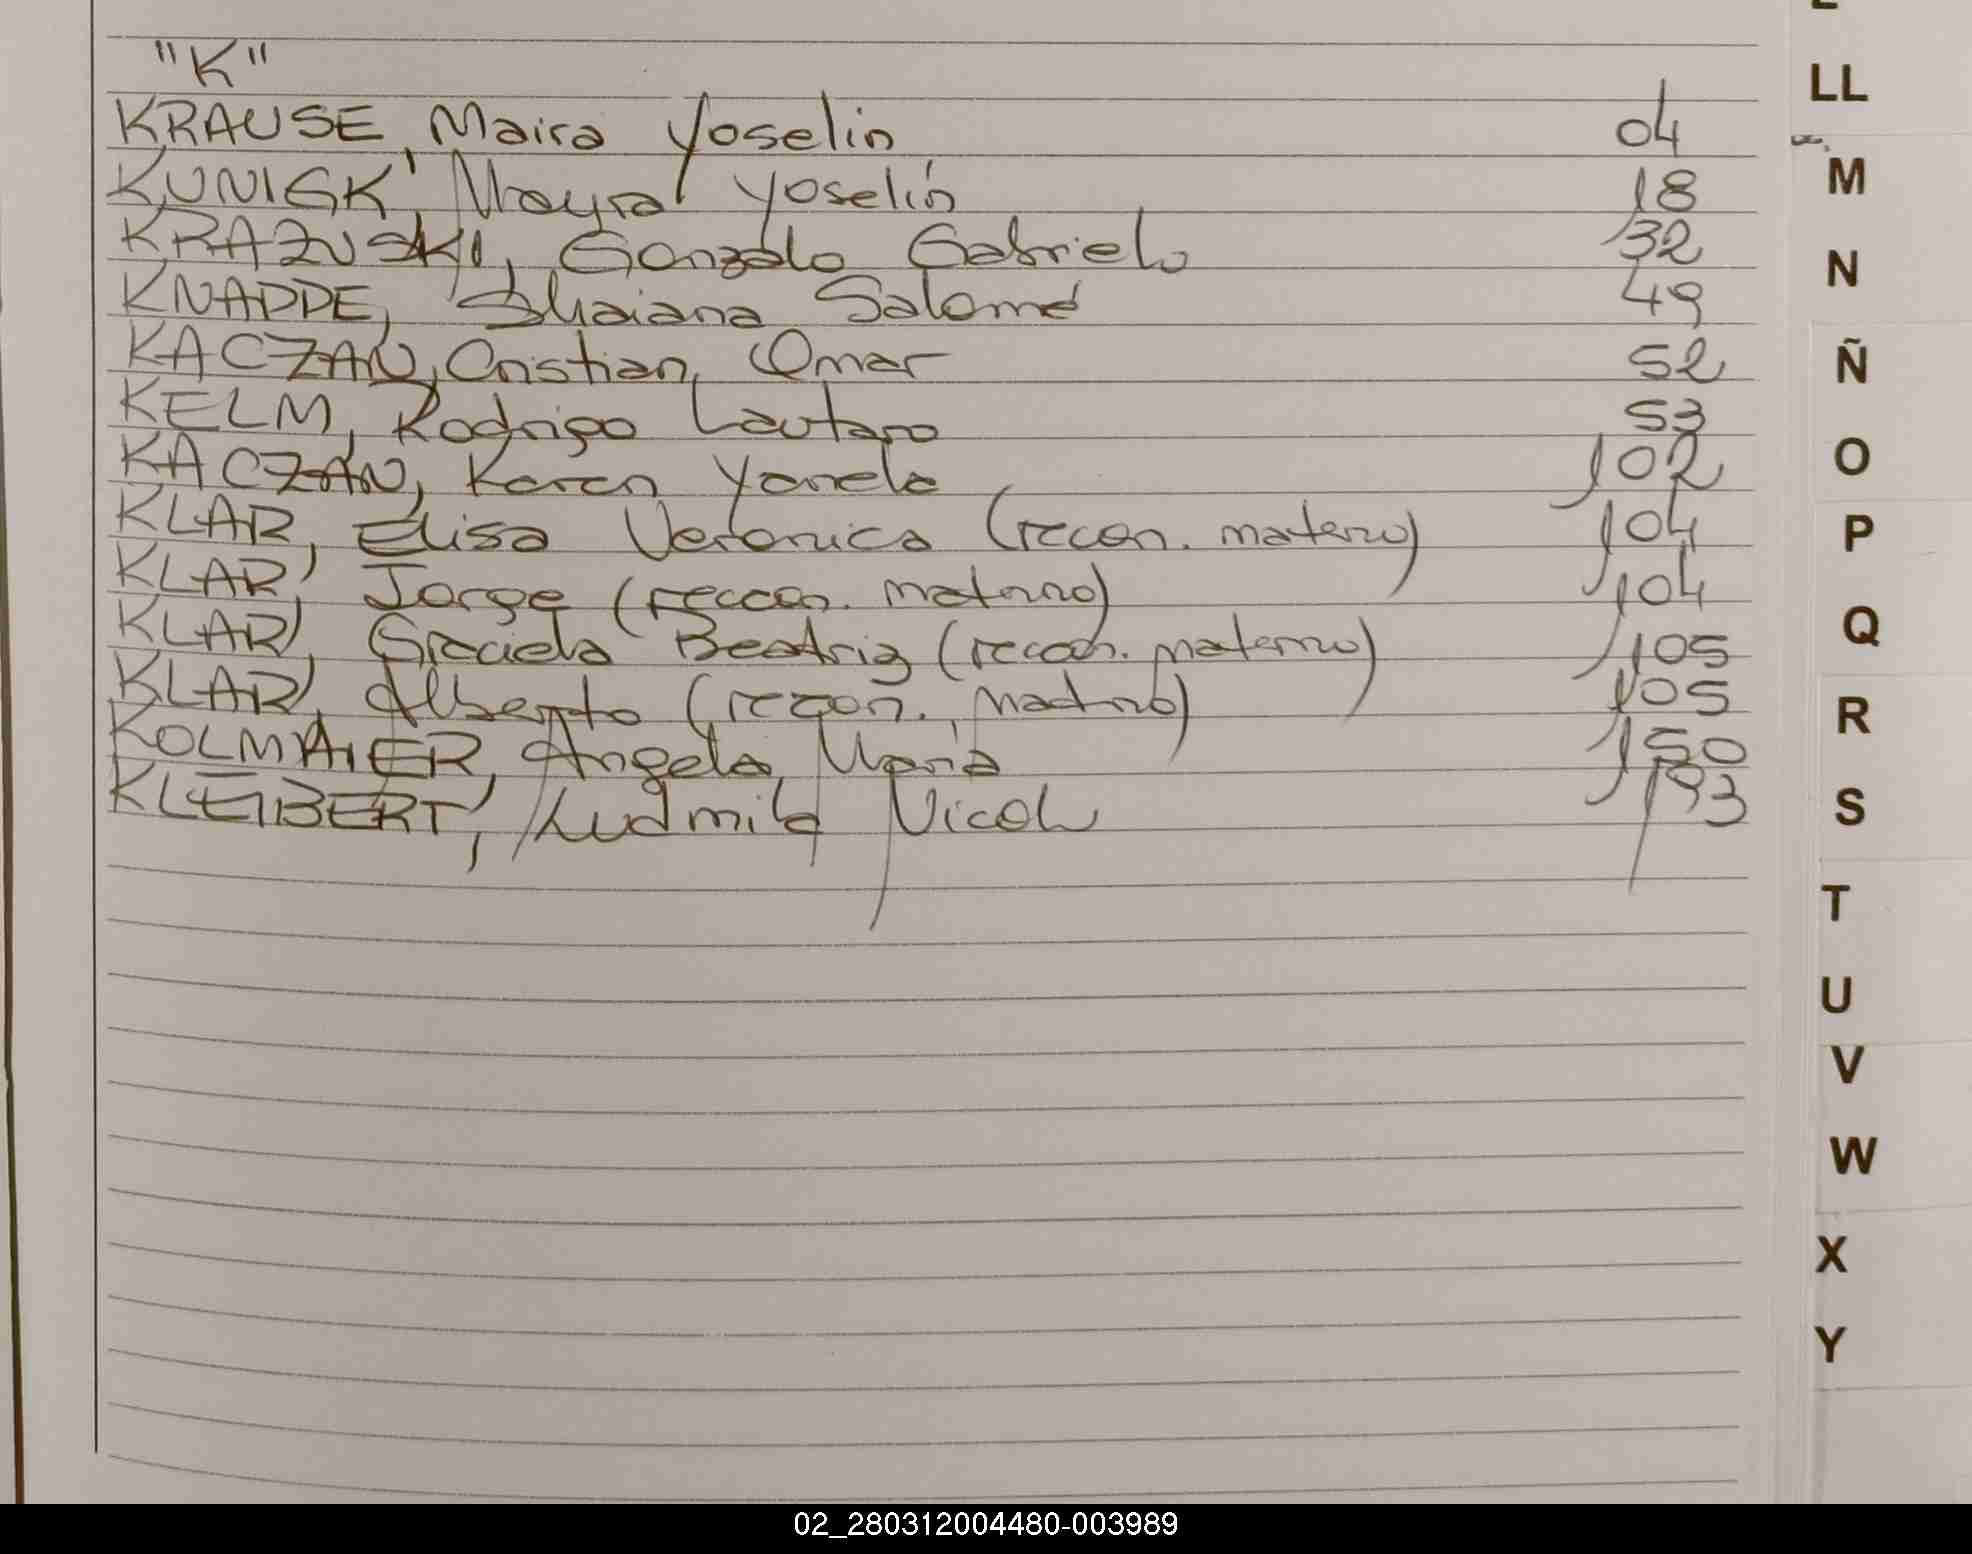 "K"
KRAUSE, Maira Yoselin 04
KUNIGK, Mayra Yoselin 18
KRAZUSKI, Gonzalo Gabriel 32
KNAPPE, Shaiana Salomé 49
KACZAN, Cristian Omar 52
KELM, Rodrigo Lautaro 53
KACZAN, Karen Yanela 102
KLAR, Elisa Veronica (recon. materno) 104
KLAR, Jorge (reccon. materno) 104
KLAR, Graciela Beatriz (recon. materno) 105
KLAR, Alberto (recon. materno) 105
KOLMAIER, Angela Maria 150
KLEIBERT, Ludmila Nicole 193
LL
M
N
Ñ
O
P
Q
R
S
T
U
V
W
X
Y
02_280312004480-003989